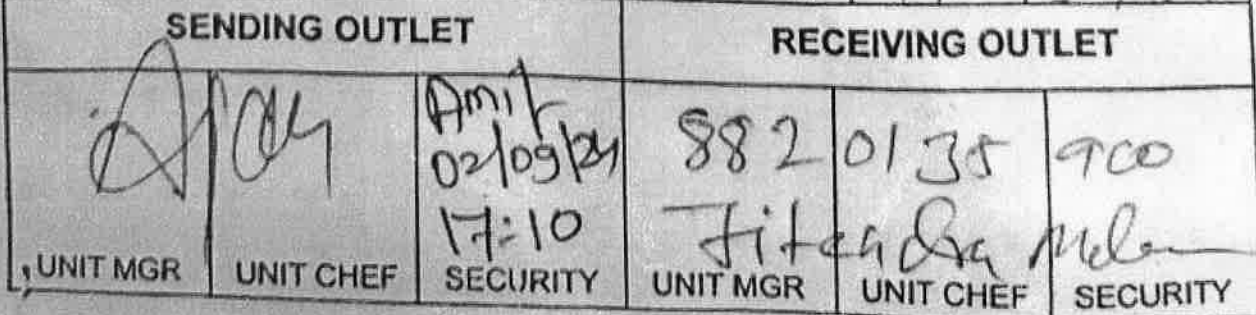 SENDING OUTLET
RECEIVING OUTLET
Amit
02/09/24
17:10
882 0135 900
Jitendra
UNIT MGR
UNIT CHEF
SECURITY
UNIT MGR
UNIT CHEF
SECURITY